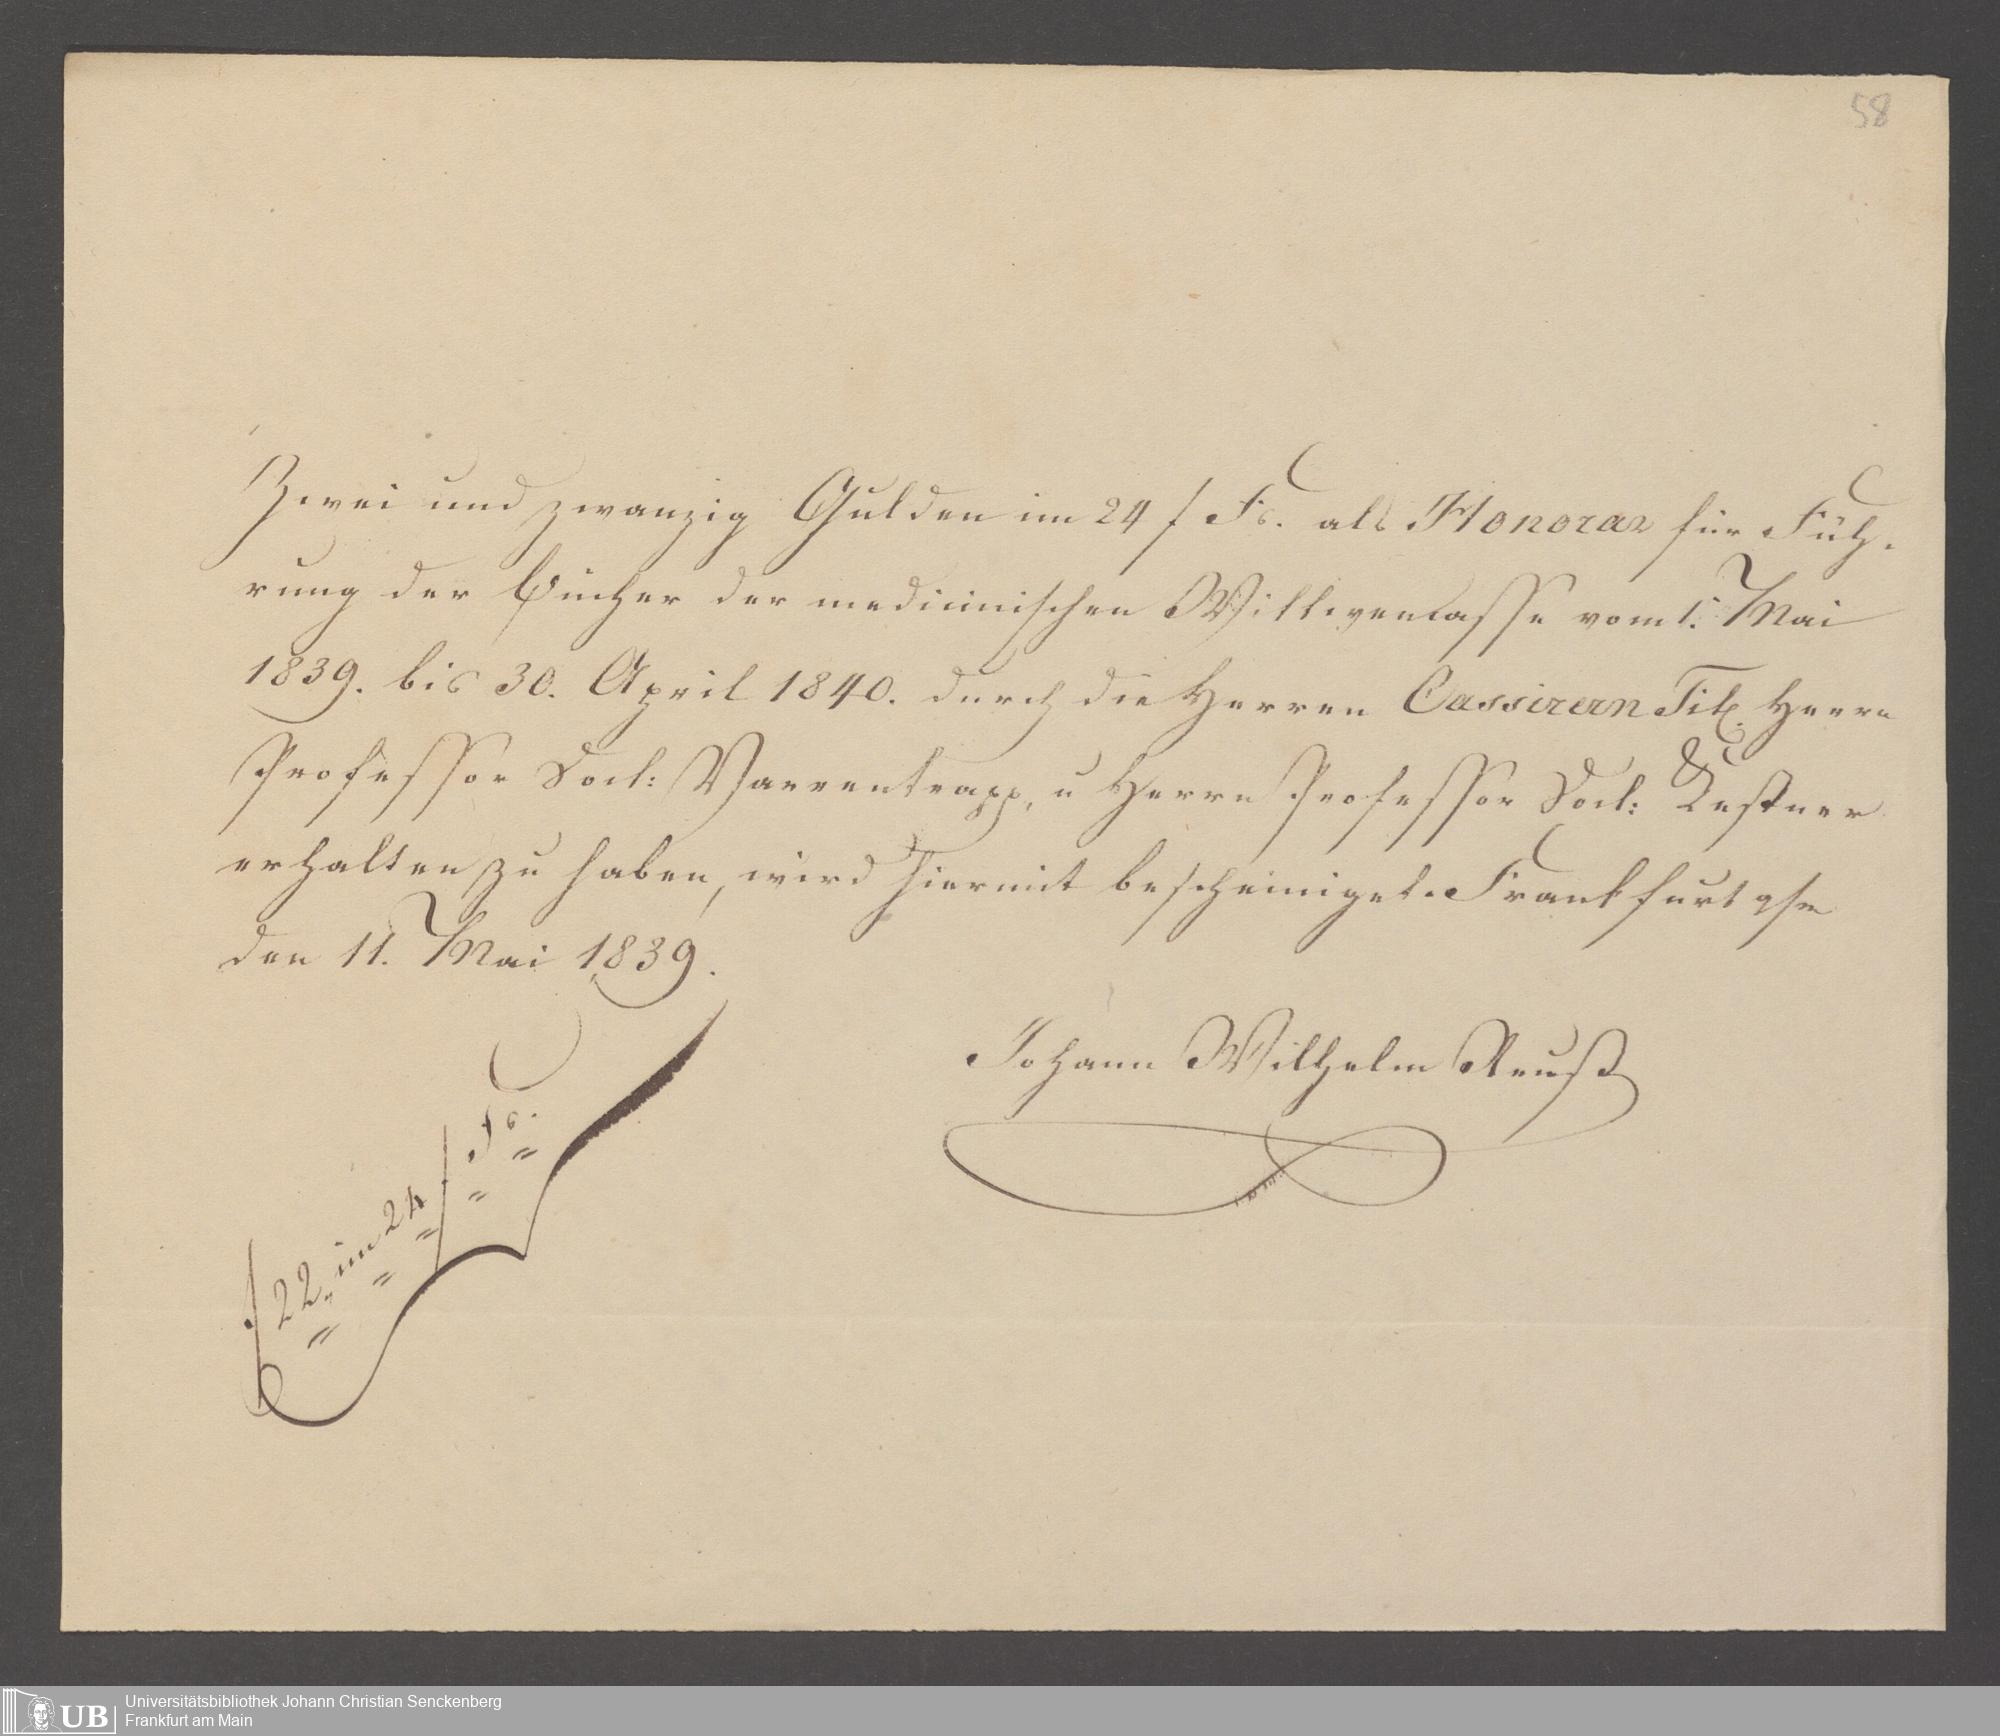 58
Zwei und zwanzig Gulden im 24 f Fs. als Honorar für Füh-
rung der Bücher der medicinischen Wittwencasse vom 1. Mai
1839. bis 30. April 1840. durch die Herren Cassirern Tit. Herrn
Professor Doct: Varrentrapp, u Herrn Professor Doct: Kestner
erhalten zu haben, wird hiermit bescheiniget. Frankfurt a/m
den 11. Mai 1839.
Johann Wilhelm Reuß
f 22 „ im 24 f Fs.
UB
Universitätsbibliothek Johann Christian Senckenberg
Frankfurt am Main